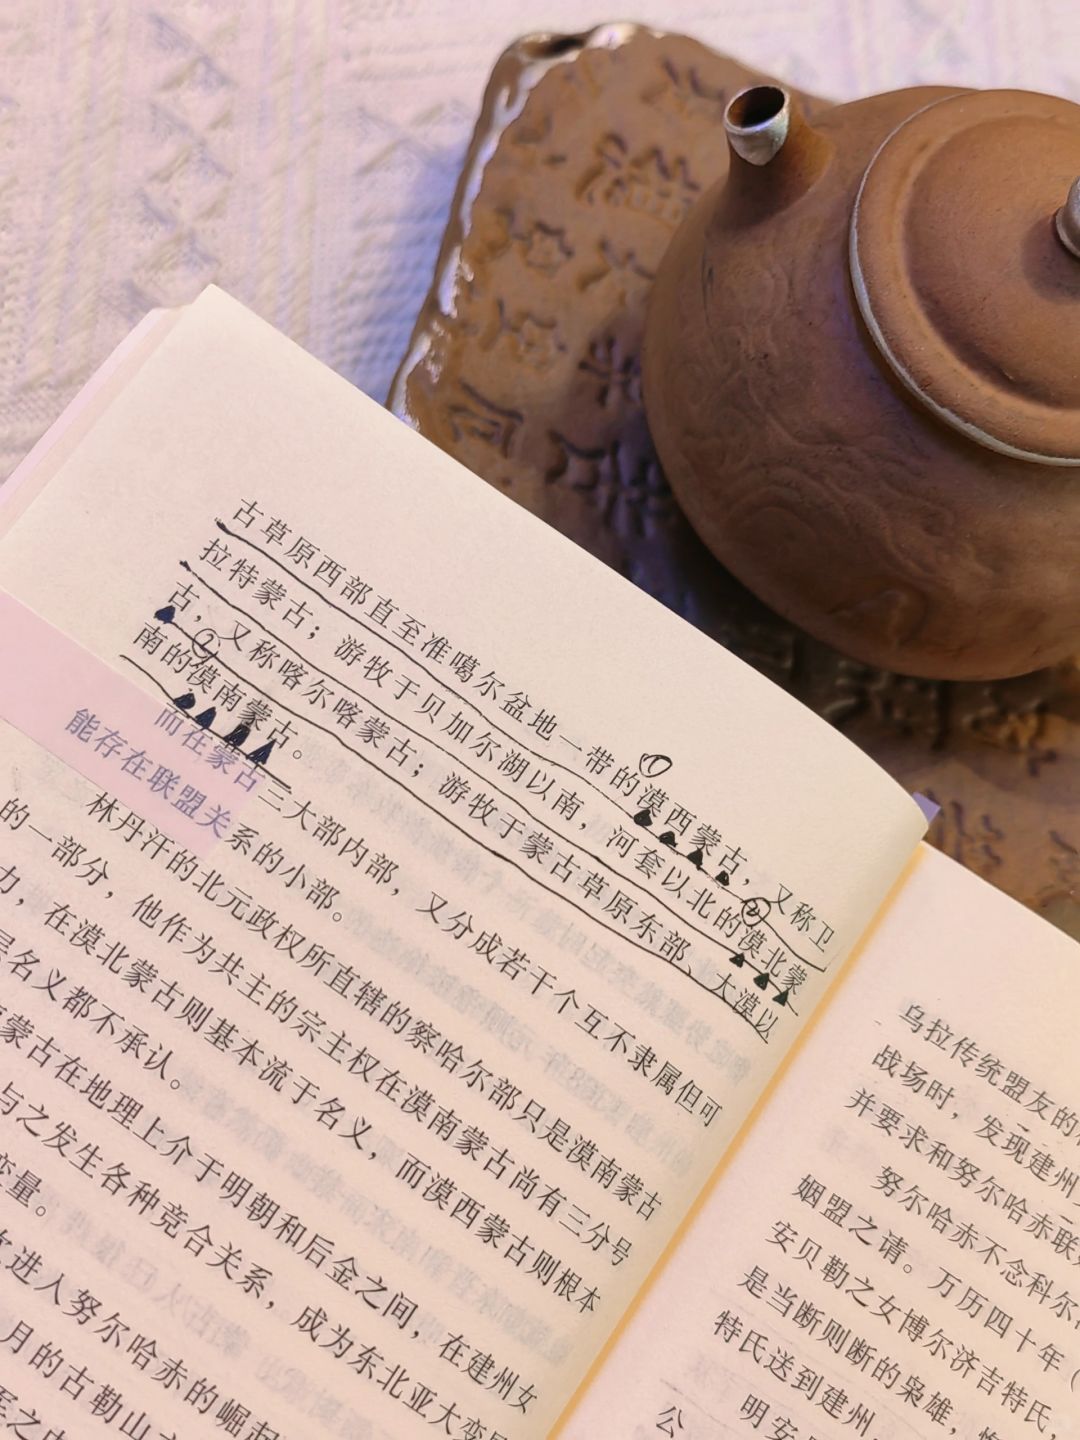 古草原西部直至准噶尔盆地一带的①漠西蒙古，又称卫
拉特蒙古；游牧于贝加尔湖以南，河套以北的漠北蒙
古，又称喀尔喀蒙古；游牧于蒙古草原东部、大漠以
南的漠南蒙古。
而在蒙古三大部内部，又分成若干个互不隶属但可
能存在联盟关系的小部。
林丹汗的北元政权所直辖的察哈尔部只是漠南蒙古
的一部分，他作为共主的宗主权在漠南蒙古尚有三分号
力，在漠北蒙古则基本流于名义，而漠西蒙古则根本
名义都不承认。
蒙古在地理上介于明朝和后金之间，在建州女
与之发生各种竞合关系，成为东北亚大变
变量。
进入努尔哈赤的崛起
月的古勒山
之中
乌拉传统盟友的
战场时，发现建州
并要求和努尔哈赤联
努尔哈赤不念科尔
姻盟之请。万历四十年（
安贝勒之女博尔济吉特氏，
是当断则断的枭雄，
特氏送到建州，
明安
公